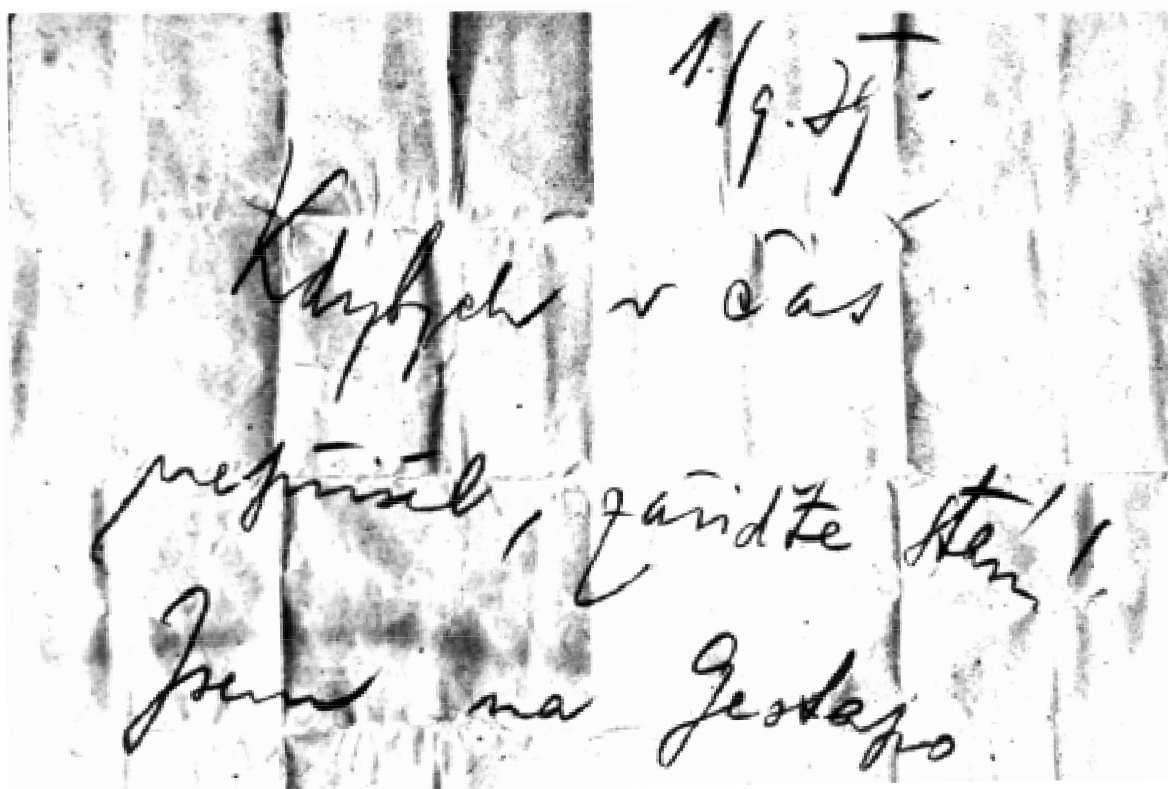 1./9. 39.
Kdybych v čas
nepřišel, zařidťe
Jsem na Gestapo